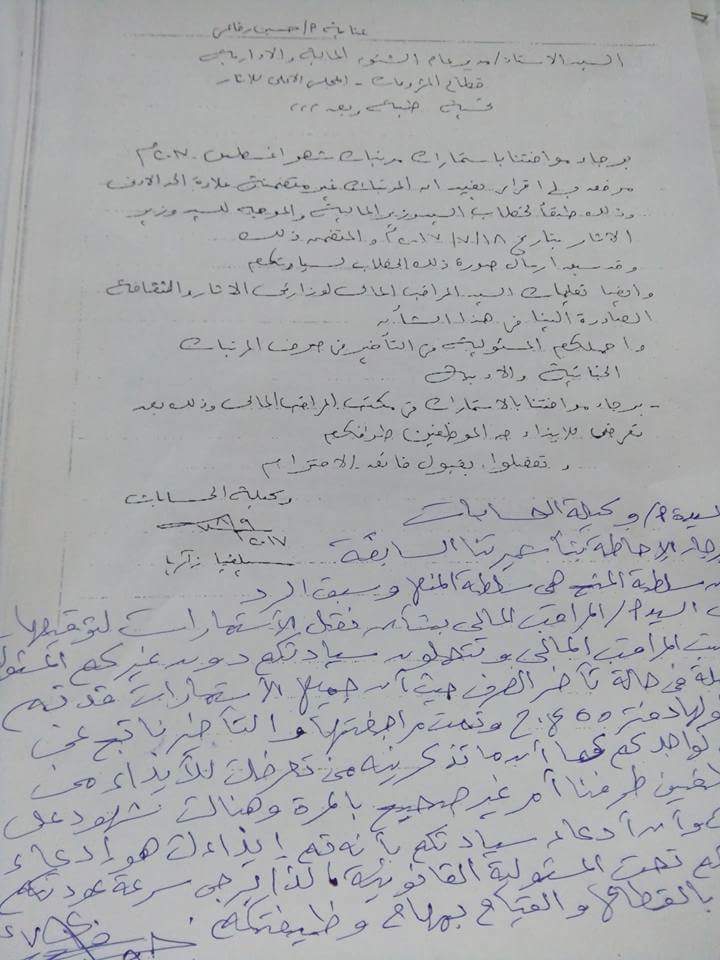 عناية م/ حسين رفاعى
السيد الاستاذ/ مدير عام الشئون المالية والادارية
قطاع المشروعات - المجلس الاعلى للاثار
تحية طيبة وبعد ،،،
برجاء موافتنا باستمارات مرتبات شهر اغسطس ٢٠١٧م
مرفقه اقرار يفيد ان المرتبات غير متضمنة علاوة الحد الادنى
وذلك طبقاً لخطاب السيد وزير المالية والموجه للسيد وزير
الاثار بتاريخ ١٨/٧/٢٠١٧م والمتضمن ذلك
وقد سبق ارسال صورة ذلك الخطاب لسيادتكم
وايضا تعليمات السيد المراقب المالى لوزارتى الاثار والثقافة
الصادرة الينا فى هذا الشأن
واحملكم المسئولية فى التأخير فى صرف المرتبات
الجنائية والادبية
- برجاء موافتنا بالاستمارات فى مكتب المراقب المالى وذلك بعد
تعرضى للايذاء من الموظفين طرفكم
وتفضلوا بقبول فائق الاحترام
وكيلة الحسابات
٢٠١٧
سيلفيا زكريا
السيدة م/ وكيلة الحسابات
برجاء الإحاطة بتأشيرتنا السابقة
سلطة المنح هى سلطة المنع وسبق الرد
السيد م/ المراقب المالى بشأن نقل الأستمارات لتوقيعها
المراقب المالى وتتحملون سيادتكم دون غيركم المسئولية
فى حالة تأخر الصرف حيث أن جميع الأستمارات قد تم
دفتر ٥٥ ع.ح وتمت مراجعتها والتأخر ناتج عن
تواجدكم كما أن ما تذكرينه من تعرضك للأيذاء من
طرفنا أمر غير صحيح بالمرة وهناك شهود على
وأن أدعاء سيادتكم بأنه تم إيذاءك هو إدعاء
تحت المسئولية القانونية لذا يرجى سرعة عودتكم
بالقطاع والقيام بمهام وظيفتكم